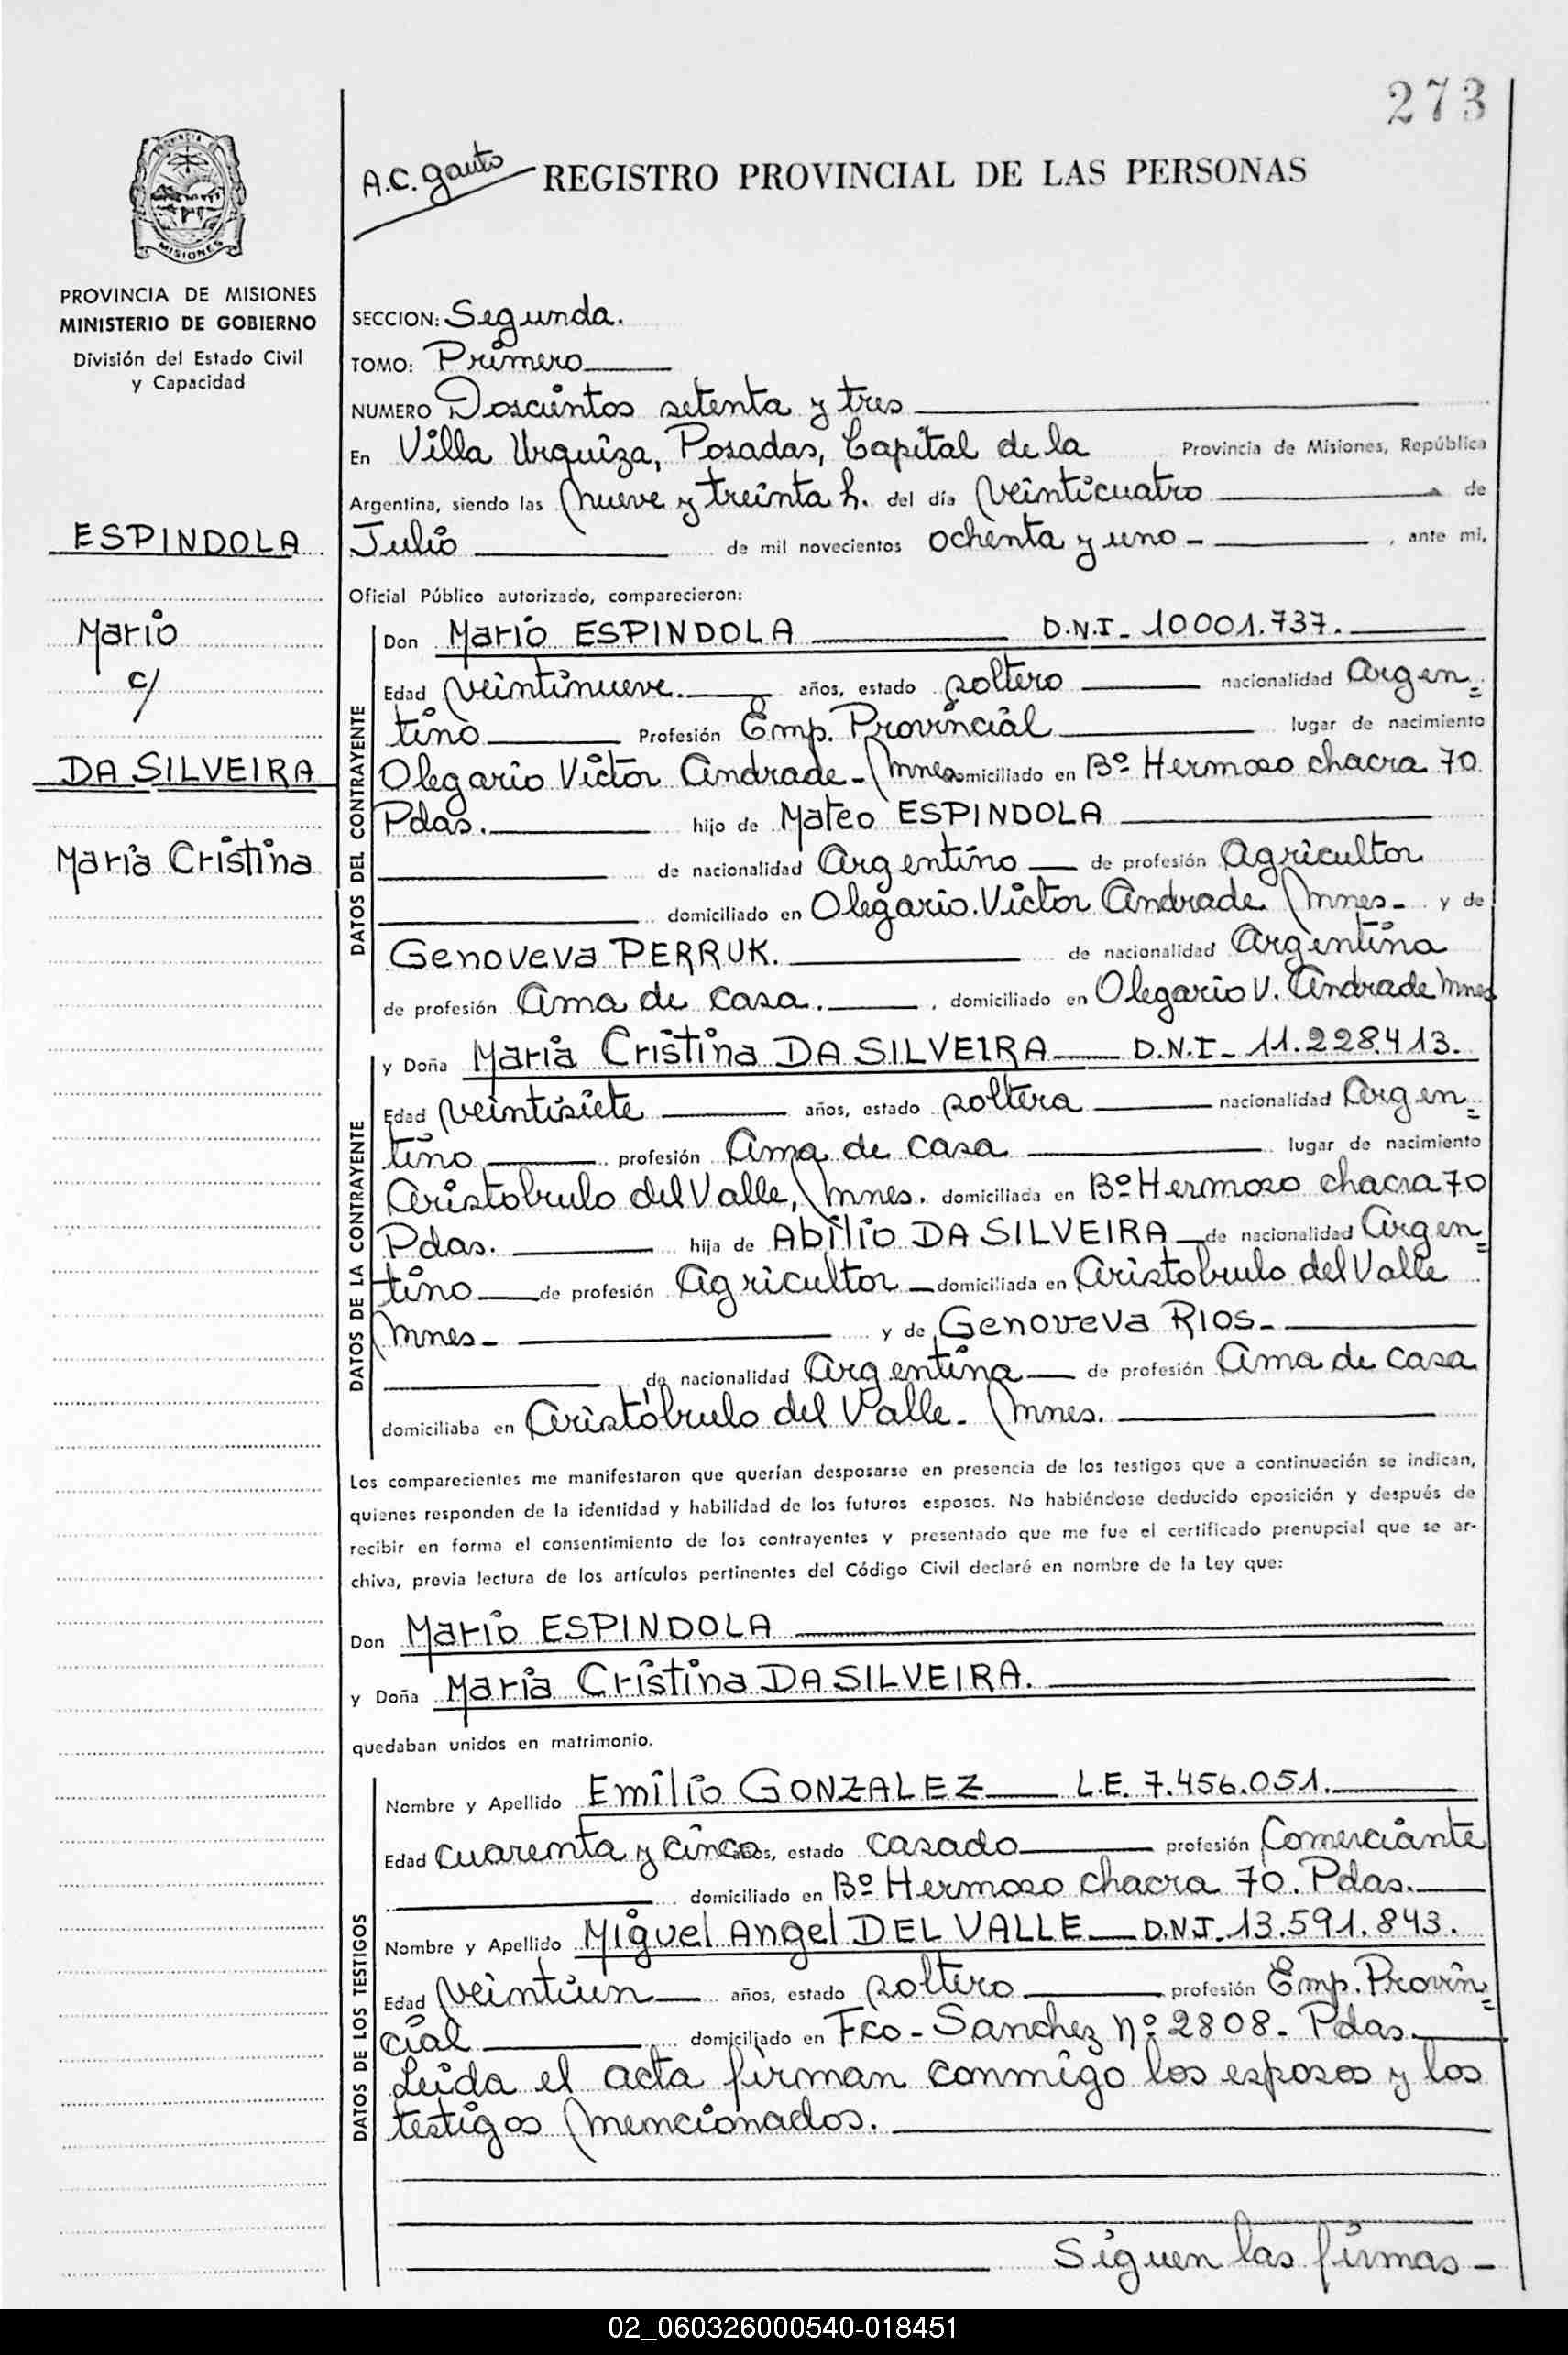 273
A.C. Gauto
REGISTRO PROVINCIAL DE LAS PERSONAS
PROVINCIA DE MISIONES
MINISTERIO DE GOBIERNO
División del Estado Civil
y Capacidad
ESPINDOLA
Mario
c/
DA SILVEIRA
Maria Cristina
SECCION: Segunda.
TOMO: Primero
NUMERO Doscientos setenta y tres
En Villa Urquiza, Posadas, Capital de la Provincia de Misiones, República
Argentina, siendo las nueve y treinta h. del día veinticuatro de
Julio de mil novecientos ochenta y uno - , ante mi,
Oficial Público autorizado, comparecieron:
DATOS DEL CONTRAYENTE
Don Mario ESPINDOLA D.N.I - 10001.737.
Edad veintinueve. años, estado soltero nacionalidad Argen=
tino Profesión Emp. Provincial lugar de nacimiento
Olegario Victor Andrade - Mnes domiciliado en Bº Hermoso chacra 70
Pdas. hijo de Mateo ESPINDOLA
de nacionalidad Argentino de profesión Agricultor
domiciliado en Olegario. Victor Andrade Mnes - y de
Genoveva PERRUK. de nacionalidad Argentina
de profesión Ama de casa. , domiciliado en Olegario V. Andrade Mnes
DATOS DE LA CONTRAYENTE
y Doña Maria Cristina DA SILVEIRA D.N.I - 11.228.413.
Edad veintisiete años, estado soltera nacionalidad Argen=
tino profesión Ama de casa lugar de nacimiento
Aristobulo del Valle, Mnes. domiciliada en Bº Hermoso chacra 70
Pdas. hija de Abilio DA SILVEIRA de nacionalidad Argen=
tino de profesión Agricultor domiciliada en Aristobulo del Valle
Mnes - y de Genoveva RIOS -
de nacionalidad Argentina de profesión Ama de casa
domiciliaba en Aristóbulo del Valle - Mnes.
Los comparecientes me manifestaron que querían desposarse en presencia de los testigos que a continuación se indican,
quienes responden de la identidad y habilidad de los futuros esposos. No habiéndose deducido oposición y después de
recibir en forma el consentimiento de los contrayentes y presentado que me fue el certificado prenupcial que se ar-
chiva, previa lectura de los artículos pertinentes del Código Civil declaré en nombre de la Ley que:
Don Mario ESPINDOLA
y Doña Maria Cristina DA SILVEIRA.
quedaban unidos en matrimonio.
DATOS DE LOS TESTIGOS
Nombre y Apellido Emilio GONZALEZ L.E. 7.456.051.
Edad cuarenta y cinco años, estado casado profesión Comerciante
domiciliado en Bº Hermoso chacra 70. Pdas.
Nombre y Apellido Miguel Angel DEL VALLE D.N.I - 13.591.843.
Edad veintiún años, estado soltero profesión Emp. Provin=
cial domiciliado en Fco - Sanchez nº 2808 - Pdas.
Leida el acta firman conmigo los esposos y los
testigos mencionados.
Siguen las firmas -
02_060326000540-018451